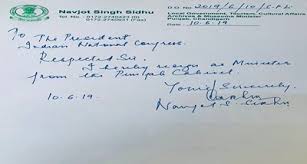 Navjot Singh Sidhu
D.O No 2019/6/10/
Local Government, Tourism, Cultural Affairs,
Archives & Museums Minister
Punjab, Chandigarh
Date 10-6-19
To The President
Indian National Congress.
Respected Sir.
I hereby resign as Minister
from the Punjab Cabinet.
Yours Sincerely
10-6-19.
Navjot S. Sidhu